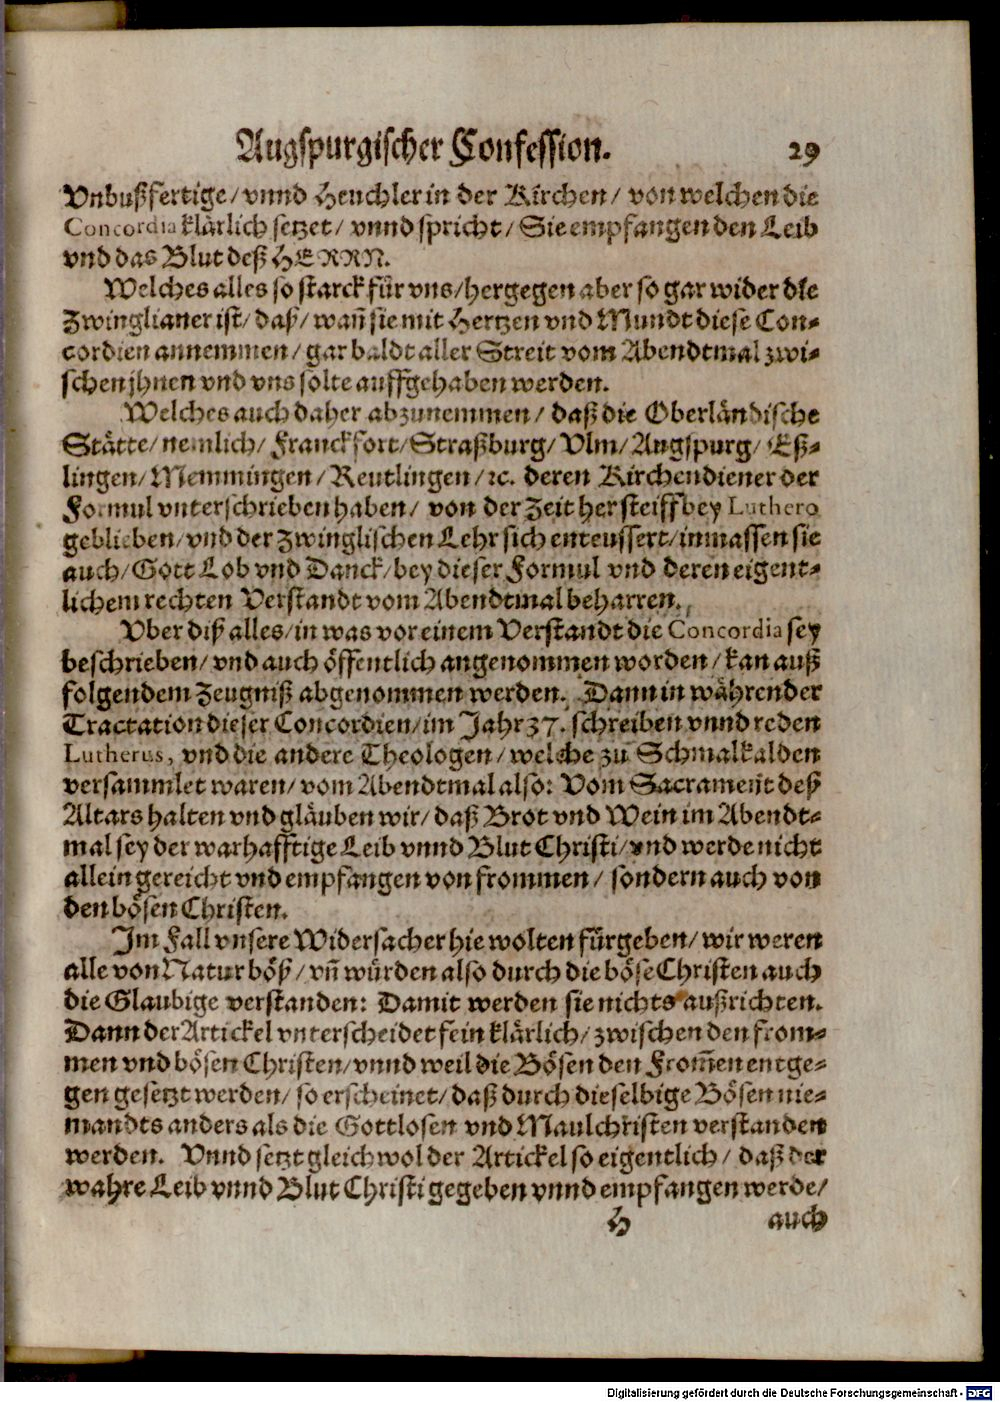 Augspurgischer Confession. 29
Vnbußfertige/ vnnd Heuchler in der Kirchen/ von welchen die
Concordia klärlich setzet/ vnnd spricht/ Sie empfangen den Leib
vnd das Blut deß HERRN.
Welches alles so starck für vns/ hergegen aber so gar wider die
Zwinglianer ist/ daß/ wañ sie mit Hertzen vnd Mundt diese Con-
cordien annemmen/ gar baldt aller Streit vom Abendtmal zwi-
schen jhnen vnd vns solte auffgehaben werden.
Welches auch daher abzunemmen/ daß die Oberländische
Stätte/ nemlich/ Franckfort/ Straßburg/ Vlm/ Augspurg/ Eß-
lingen/ Memmingen/ Reutlingen/ ꝛc. deren Kirchendiener der
Formul vnterschrieben haben/ von der Zeit her steiff bey Luthero
geblieben/ vnd der Zwinglischen Lehr sich enteussert/ inmassen sie
auch/ Gott Lob vnd Danck/ bey dieser Formul vnd deren eigent-
lichem rechten Verstandt vom Abendtmal beharren.
Vber diß alles/ in was vor einem Verstandt die Concordia sey
beschrieben/ vnd auch öffentlich angenommen worden/ kan auß
folgendem Zeugniß abgenommen werden. Dann in währender
Tractation dieser Concordien/ im Jahr 37. schreiben vnnd reden
Lutherus, vnd die andere Theologen/ welche zu Schmalkalden
versammlet waren/ vom Abendtmal also: Vom Sacrament deß
Altars halten vnd gläuben wir/ daß Brot vnd Wein im Abendt-
mal sey der warhafftige Leib vnnd Blut Christi/ vnd werde nicht
allein gereicht vnd empfangen von frommen/ sondern auch von
den bösen Christen.
Im Fall vnsere Widersacher hie wolten fürgeben/ wir weren
alle von Natur böß/ vñ würden also durch die böse Christen auch
die Glaubige verstanden: Damit werden sie nichts außrichten.
Dann der Artickel vnterscheidet fein klärlich/ zwischen den from-
men vnd bösen Christen/ vnnd weil die Bösen den From̃en entge-
gen gesetzt werden/ so erscheinet/ daß durch dieselbige Bösen nie-
mandts anders als die Gottlosen vnd Maulchristen verstanden
werden. Vnnd setzt gleichwol der Artickel so eigentlich/ daß der
wahre Leib vnnd Blut Christi gegeben vnnd empfangen werde/
H auch
Digitalisierung gefördert durch die Deutsche Forschungsgemeinschaft - DFG